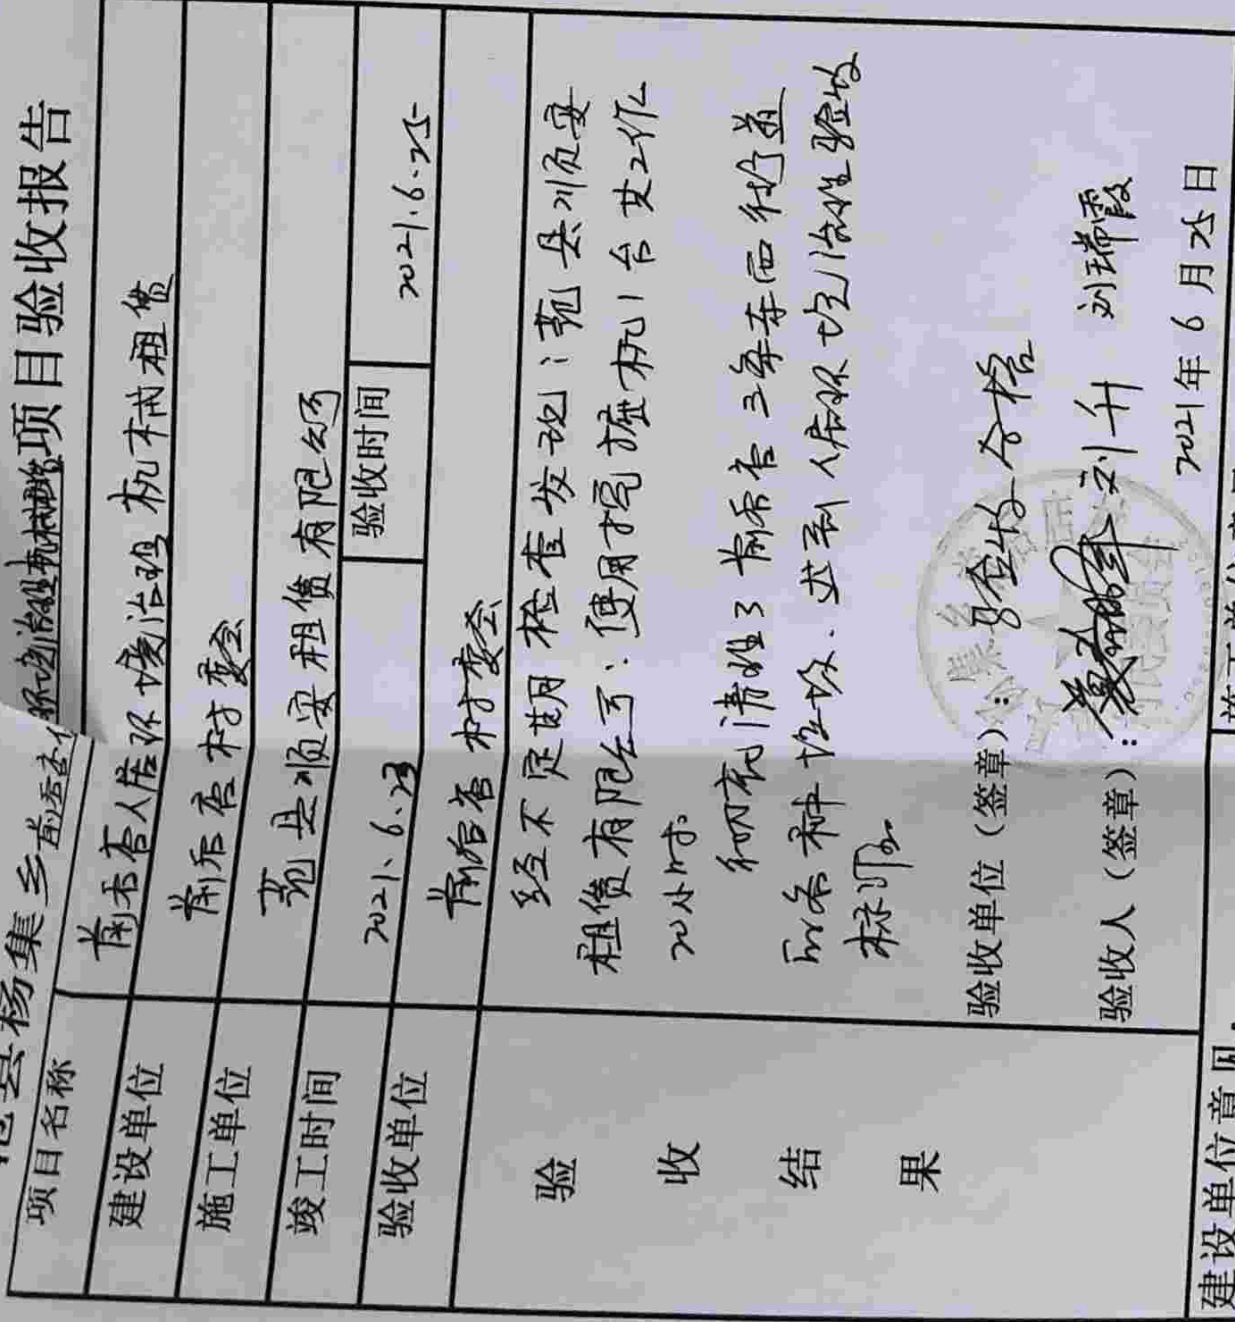 范县杨集乡前杏人居环境治理机械租赁项目验收报告
项目名称 前杏人居环境治理机械租赁
建设单位 前房杏村委会
施工单位 范县顺安租赁有限公司
竣工时间 2021.6.23 验收时间 2021.6.25
验收单位 村委会
验收结果
经不定期检查发现:范县顺安
租赁有限公司:使用挖掘机1台共工作
20小时。
彻底清理了
各种垃圾.达到人居环境治理验收
标准
验收单位(签章):验收合格
验收人(签章): 刘升 刘瑞霞
2021年6月25日
建设单位意见:
施工单位意见: